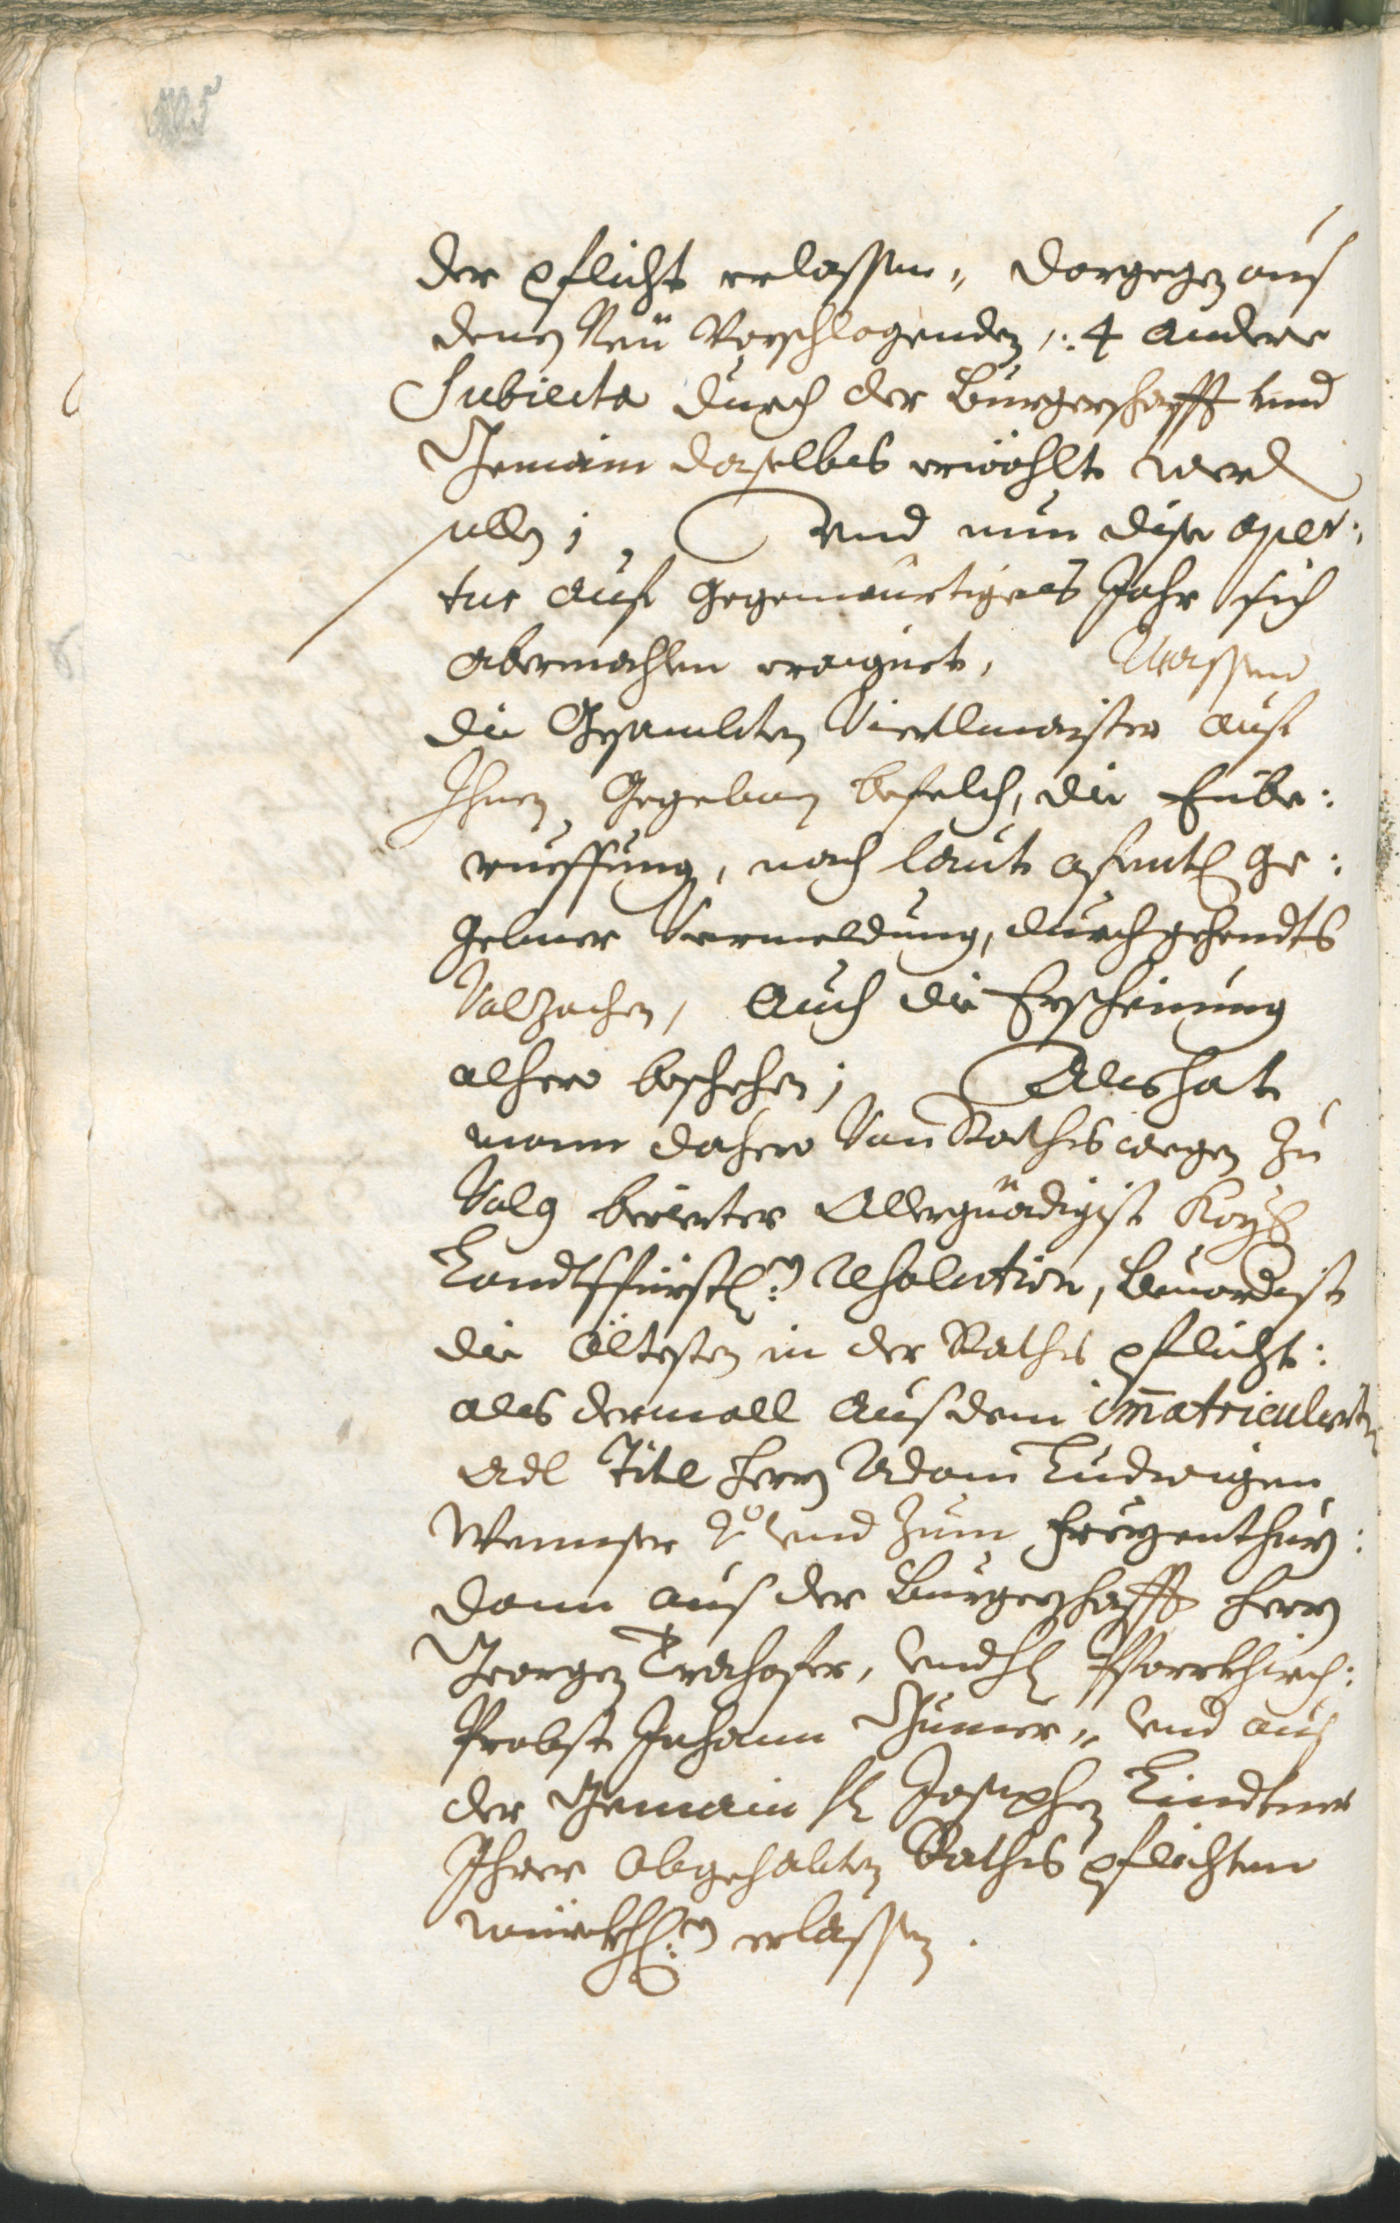 der pflicht erlassen„ dargegen aus
denen Neü Vorschlagenden, :4 andere
Subiecta durch der Burgerschafft vnd
Gemain daselbs erwöhlt werd
sollen; Vnd nun dise aper:
tur auf gegenwürtiges Jahr sich
abermahlen eraignet, Massen
die Gesambten Viertlmaister auf
Ihnen Gegeben befelch, die Einbe:
rueffung, nach laut ge:
gebner Vermeldung, durchgehendts
Volzochen, Auch die Erscheinung
alhero beschehen; Als hat
mann dahero Von Raths wegen zu
Volg berierter Allergnädigist Kay
Landtsfürstl: Resolution, beuordist
die Ältesten in der Raths pflicht:
als dermall aus dem immatriculierten
Adl Titl Herrn Adam Ludwigen
Wenser vnd zum Freyenthurn:
dann aus der Burgerschafft Herrn
Georgen Trochofer, vnd H Pfarrkhirch:
Probst Johann Thumer„ vnd aus
der Gemain H Josephen Lindtner
Ihrer Obgehabten Raths pflichten
würkhl: erlassen.